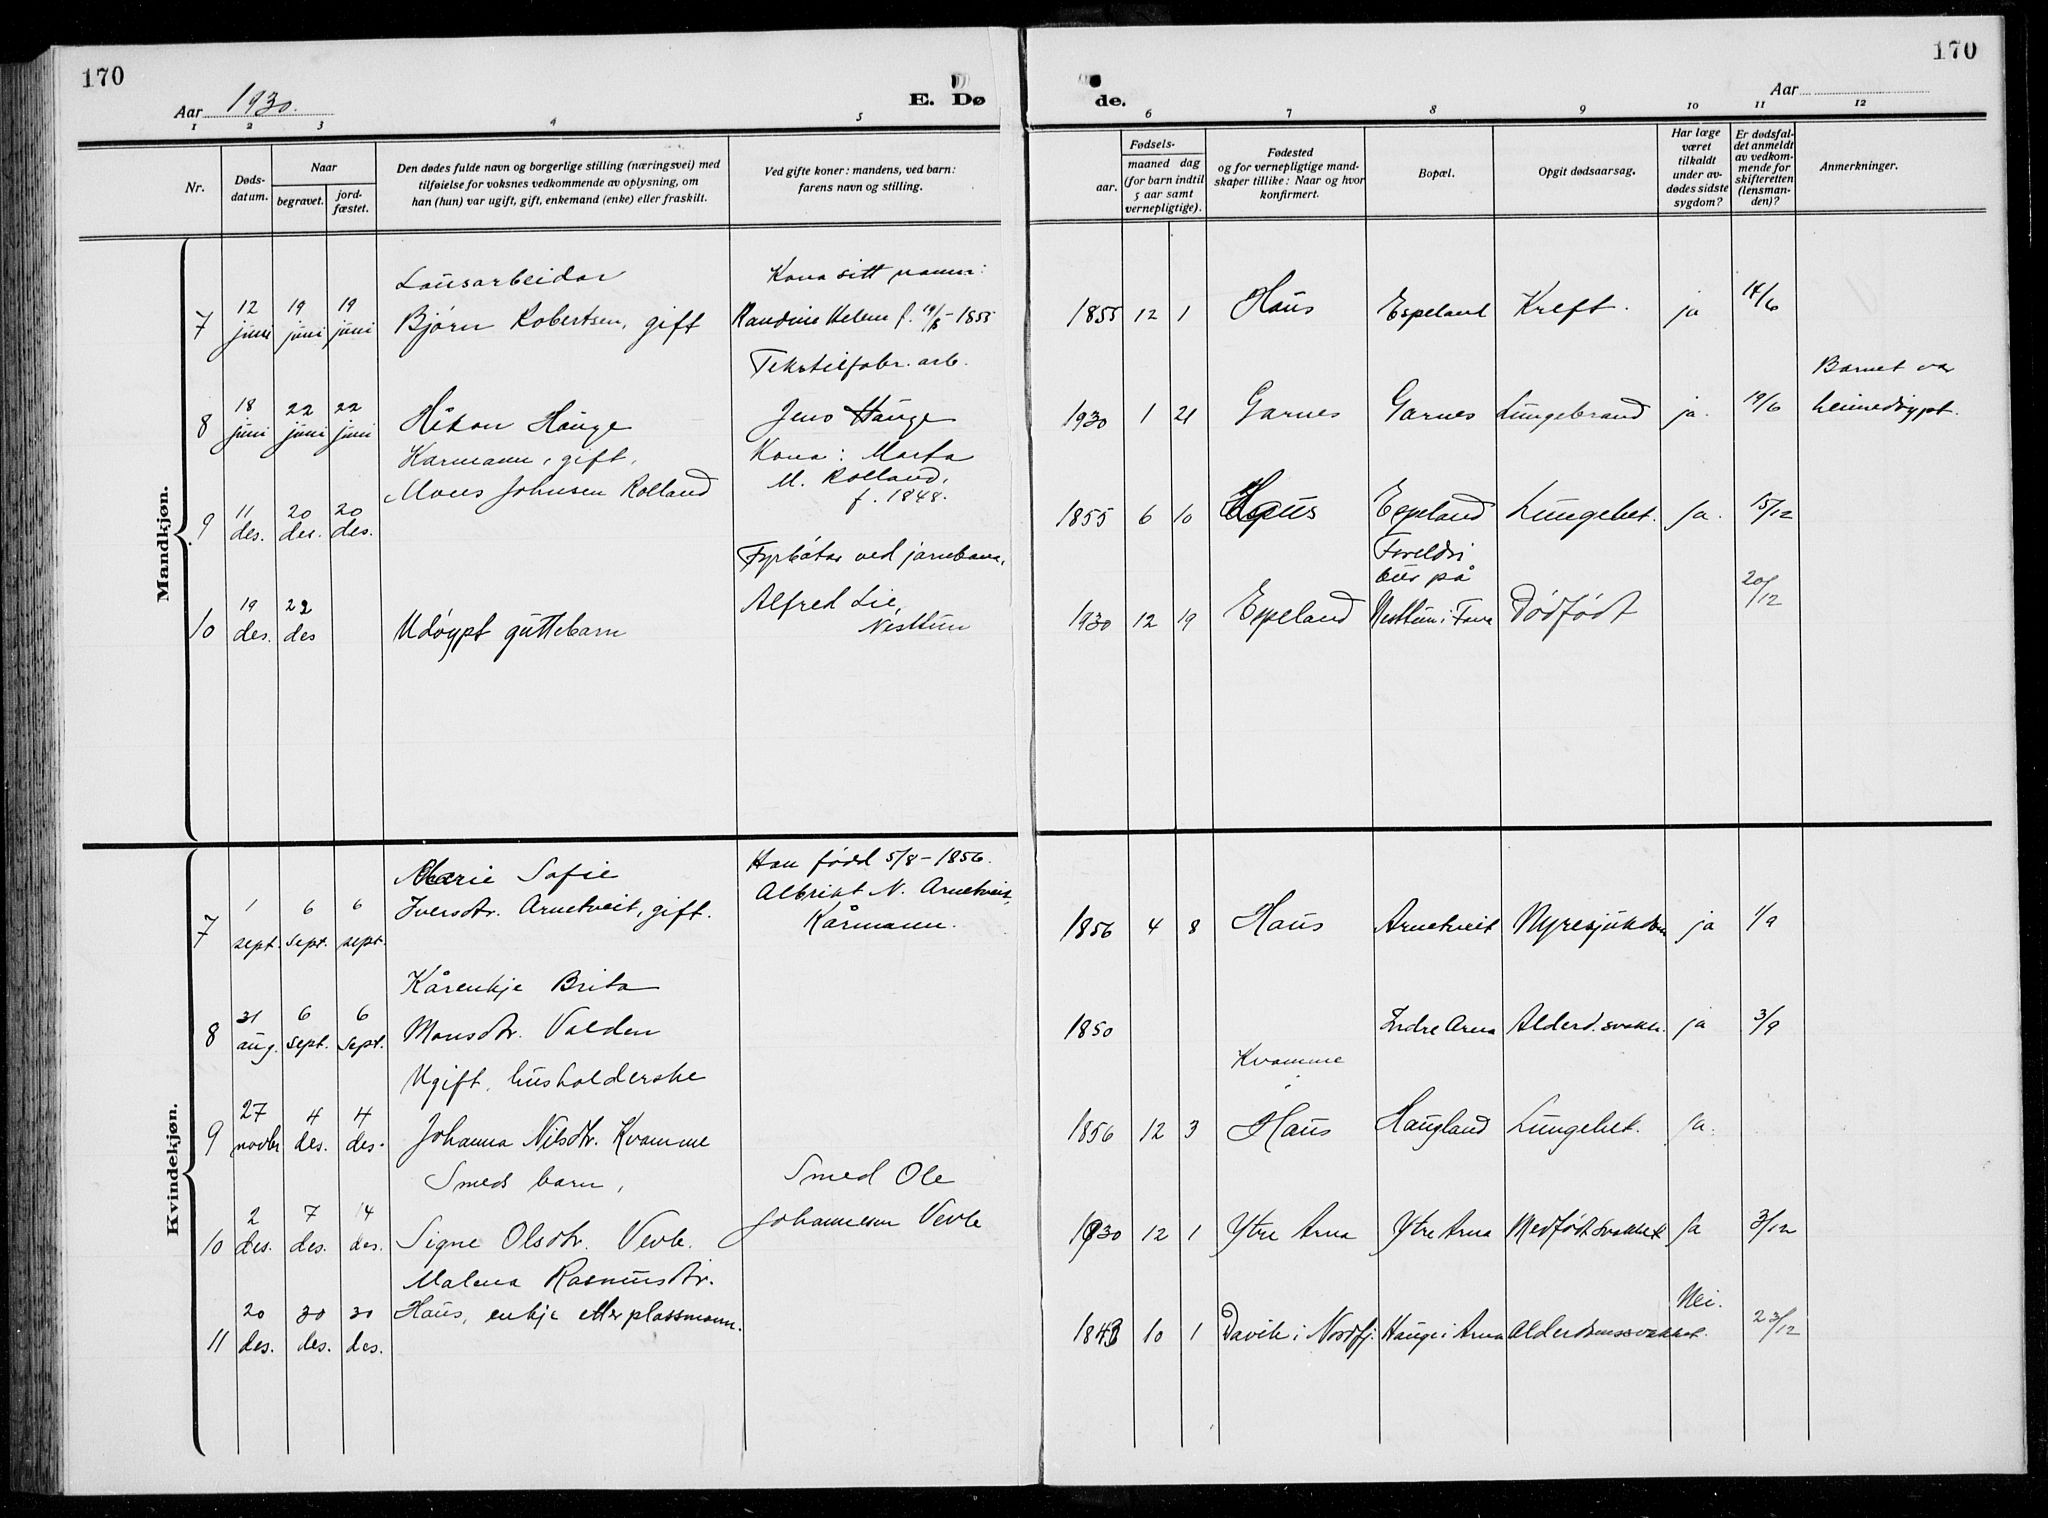 170
170
Aar 1930.
E. Dø
de.
Aar
1 2 3 4 5
6 7 8 9 10 11 12
Nr.
Døds-
datum.
Naar
begravet.
jord-
fæstet.
Den dødes fulde navn og borgerlige stilling (næringsvei) med
tilføielse for voksnes vedkommende av oplysning, om
han (hun) var ugift, gift, enkemand (enke) eller fraskilt.
Ved gifte koner: mandens, ved barn:
farens navn og stilling.
Fødsels-
aar.
maaned dag
(for barn indtil
5 aar samt
vernepligtige).
Fødested
og for vernepligtige mand-
skaper tillike: Naar og hvor
konfirmert.
Bopæl.
Opgit dødsaarsag.
Har læge
været
tilkaldt
under av-
dødes sidste
sygdom?
Er dødsfal-
det anmeldt
av vedkom-
mende for
skifteretten
(lensman-
den)?
Anmerkninger.
Mandkjøn.
Lausarbeidar
Kona sitt namn:
7 12 juni 19 juni 19 juni Bjørn Robertsen, gift Randine Helene f. 19/8-1855 1855 12 1 Haus Espeland Kreft. ja 14/6
Tekstilfabr. arb.
Barnet var
8 18 juni 22 juni 22 juni Håkon Hauge Jens Hauge 1930 1 21 Garnes Garnes Lungebrand ja. 19/6 heimedøypt.
Karmann, gift,
Kona: Marta
Mons Johnsen Rolland
M. Rolland,
f. 1848.
9 11 des. 20 des. 20 des. 1855 6 10 Haus Espeland Lungebet. Ja. 15/12
Fyrbøtar ved jarnbana,
Foreldri
bur på
10 19 des. 22 des Udøypt guttebarn Alfred Lie,
Nesttun
1930 12 19 Espeland Nesttun i Fana Dødfødt 20/12
Kvindekjøn.
Marie Sofie
Han fødd 5/8-1856.
7 1 sept. 6 sept. 6 sept. Iversdtr. Arnetveit, gift. Albrikt N. Arnetveit,
Kårmann.
1856 4 8 Haus Arnetveit Nyresjukdom ja 1/9
Kårenkje Brita
8 31 aug. 6 sept. 6 sept. Monsdtr. Valden 1850 Indre Arna Alderd. svakh. ja 3/9
Ugift, husholderske
Kvamme
i
9 27 novbr 4 des. 4 des. Johanna Nilsdtr. Kvamme 1856 12 3 Haus Haugland Lungebet. Ja.
Smeds barn,
Smed Ole
10 2 des. 7 des. 14 des. Signe Olsdtr. Vevle. Johannesen Vevle 1930 12 1 Ytre Arna Ytre Arna Medfødt svakhet Ja 3/12
Malena Rasmusdtr.
11 20 des. 30 des. 30 des. Haus, enkje etter plassmann. 1843 10 1 Davik i Nordfj. Hauge i Arna Alderdomssvakhet. Nei. 23/12